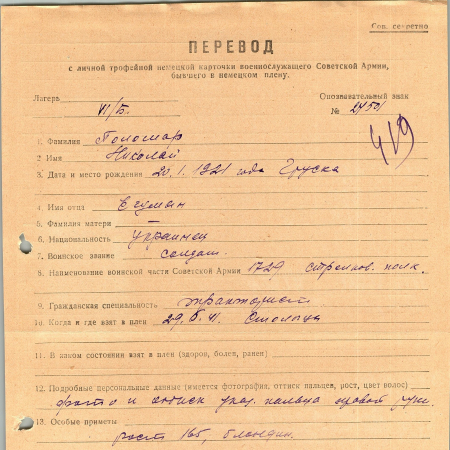 Сов. секретно
ПЕРЕВОД
с личной трофейной немецкой карточки военнослужащего Советской Армии,
бывшего в немецком плену.
Лагерь VI/Б.
Опознавательный знак
№ 2450
419
1. Фамилия Пономар
2 Имя Николай
3. Дата и место рождения 20.1.1921 года Груска
4. Имя отца
5. Фамилия матери —
6. Национальность украинец
7. Воинское звание солдат.
8. Наименование воинской части Советской Армии 1729 стрелков. полк.
9. Гражданская специальность тракторист
10. Когда и где взят в плен 41.
11. В каком состоянии взят в плен (здоров, болен, ранен)
12. Подробные персональные данные (имеется фотография, оттиск пальцев, рост, цвет волос)
фото и оттиск указ. пальца правой руки.
13. Особые приметы
рост 165, блондин.